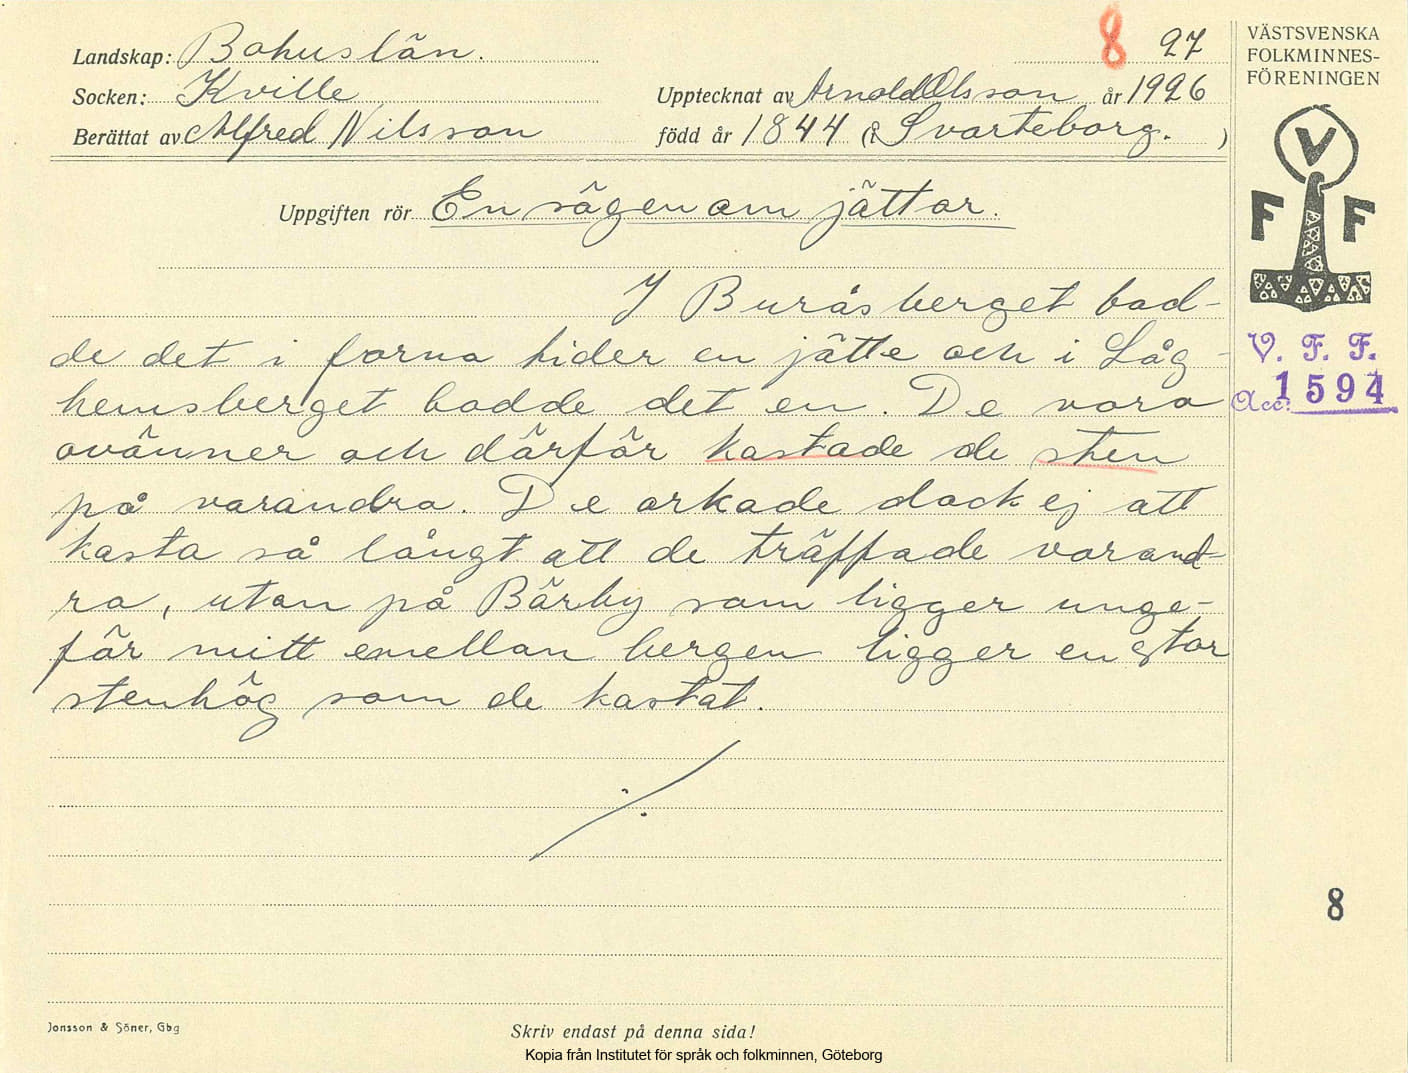 Landskap: Bohuslän.
8 27
Socken: Kville
Upptecknat av Arnold Olsson år 1926
Berättat av Alfred Nilsson
född år 1844 (i Svarteborg. )
Uppgiften rör En sägen om jättar.
I Buråsberget bod-
de det i forna tider en jätte och i Låg-
hemsberget bodde det en. De voro
ovänner och därför kastade de sten
på varandra. De orkade dock ej att
kasta så långt att de träffade varand-
ra, utan på Bärby som ligger unge-
fär mitt emellan bergen ligger en stor
stenhög som de kastat.
VÄSTSVENSKA
FOLKMINNES-
FÖRENINGEN
V
F F
V. F. F.
Acc: 1594
8
Jonsson & Söner, Gbg
Skriv endast på denna sida!
Kopia från Institutet för språk och folkminnen, Göteborg